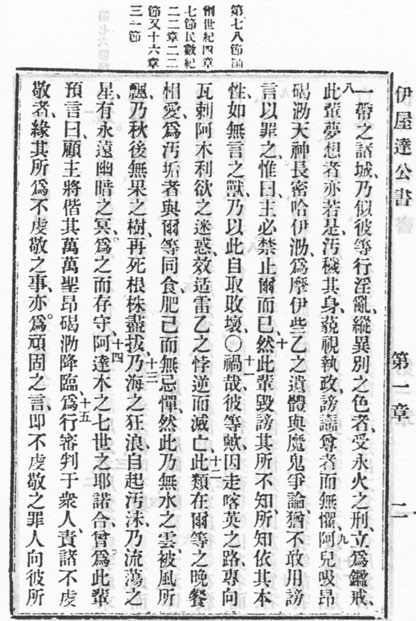 伊屋達公書
第一章
二
一帶之諸城乃似彼等行淫亂縱異別之色者受永火之刑立爲鑑戒
八
此輩夢想者亦若是汚穢其身藐視執政謗讟尊者而無懼
九
阿兒吸昂
碣沕天神長密哈伊沕爲摩伊些乙之遺體與魔鬼爭論猶不敢用謗
言以罪之惟曰主必禁止爾而已
十
然此輩毀謗其所不知所知依其本
性如無言之獸乃以此自取敗壞〇
十一
禍哉彼等蓋因走喀英之路專向
瓦剌阿木利欲之迷惑效適雷乙之悖逆而滅亡
十二
此類在爾等之晚餐
相愛爲汚垢者與爾等同食肥己而無忌憚然此乃無水之雲被風所
飄乃秋後無果之樹再死根株盡拔
十三
乃海之狂浪自起汚沬乃流蕩之
星有永遠幽暗之冥爲之而存守
十四
阿達木之七世之耶諾合曾爲此輩
預言曰顧主將偕其萬萬聖昂碣沕降臨
十五
爲行審判于衆人責諸不虔
敬者緣其所爲不虔敬之事亦爲頑固之言即不虔敬之罪人向彼所
第七八節
創世紀四章
七節民數紀
二二章二二
節又十六章
三一節